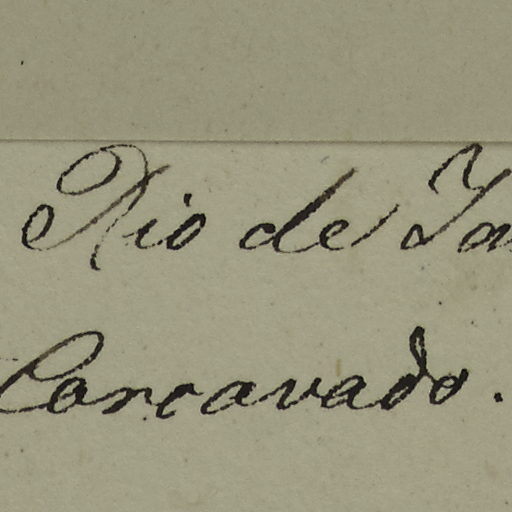 Rio de Ja
Corcavado.